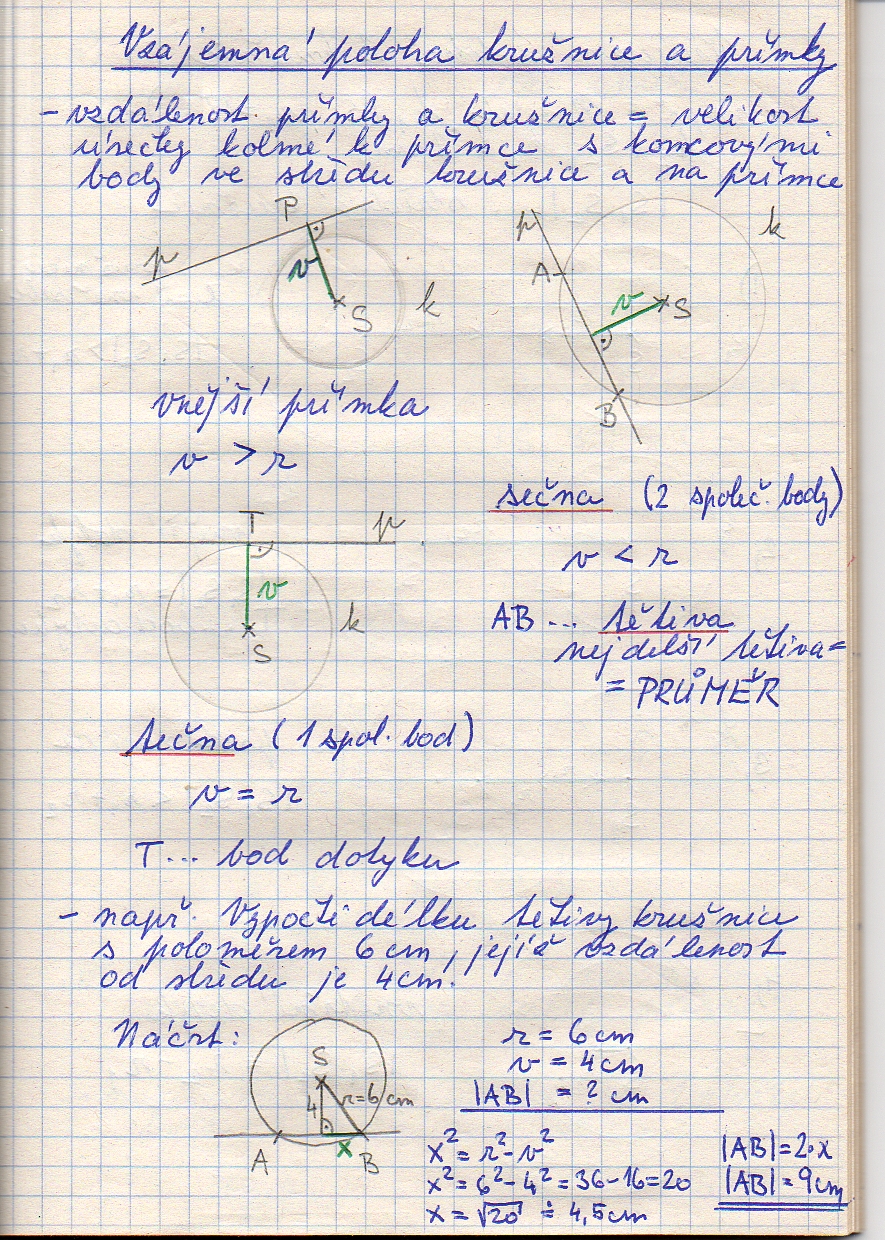 Vzájemná poloha kružnice a přímky
- vzdálenost přímky a kružnice = velikost
úsečky kolmé k přímce s koncovými
body ve středu kružnice a na přímce
P
p
v
S
k
p
k
A
v
S
B
vnější přímka
v > r
sečna (2 společ. body)
v < r
AB ... tětiva
nejdelší tětiva =
= PRŮMĚR
T
p
v
S
k
tečna (1 spol. bod)
v = r
T... bod dotyku
- např. Vypočti délku tětivy kružnice
s poloměrem 6 cm, jejíž vzdálenost
od středu je 4cm.
Náčrt:
S
4
r=6cm
A
x
B
r = 6cm
v = 4cm
|AB| = ? cm
x² = r² - v²
x² = 6² - 4² = 36 - 16 = 20
x = √20 ≐ 4,5cm
|AB| = 2·x
|AB| = 9cm